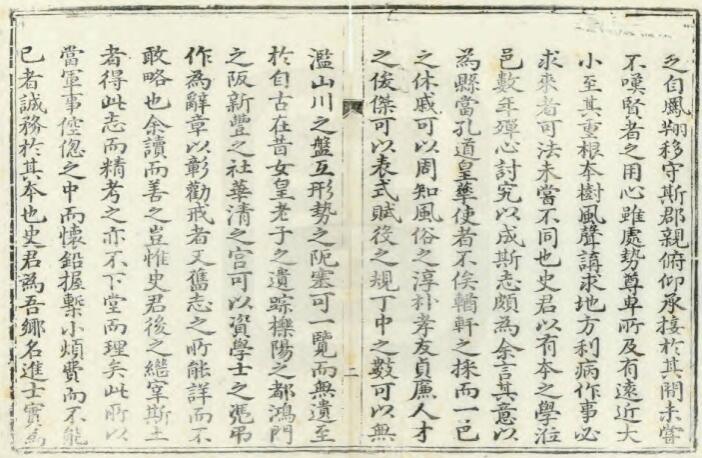 乏自鳳翔移守斯郡親俯仰承接於其間未嘗
不嘆賢者之用心雖處勢尊卑所及有遠近大
小至其重根本樹風聲講求地方利病作事必
求來者可法未當不同也史君以有本之學涖
邑數年殫心討究以成斯志頗為余言其意以
為縣當孔道皇華使者不俟輶軒之採而一邑
之休戚可以周知風俗之淳朴孝友貞廉人才
之俊傑可以表式賦役之規丁中之數可以無
二
濫山川之盤互形勢之阨塞可一覽而無遺至
於自古在昔女皇老子之遺踪櫟陽之都鴻門
之阪新豐之社華清之宮可以資學士之憑弔
作為辭章以彰勸戒者又舊志之所能詳而不
敢略也余讀而善之豈惟史君後之繼宰斯土
者得此志而精考之亦不下堂而理矣此所以
當軍事倥偬之中而懷鉛握槧小煩費而不能
已者誠務於其本也史君為吾鄉名進士實為